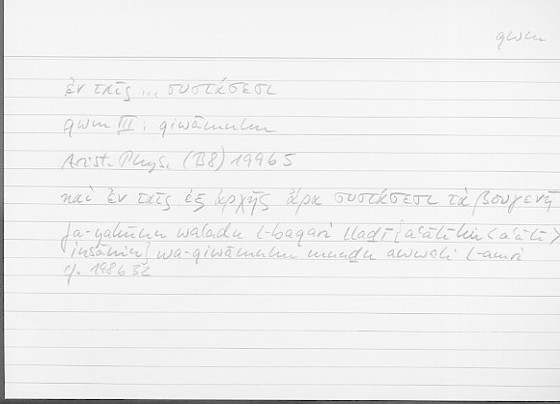 qwm
ἐν ταῖς ... συστάσεσι
qwm III: qiwāmuhu
Arist. Phys. (B8) 199b5
καὶ ἐν ταῖς ἐξ ἀρχῆς ἄρα συστάσεσι τὰ βουγενῆ
fa-yakūnu waladu l-baqari lladī
wa-qiwāmuhu mundu awwali l-amri
cf. 198b32